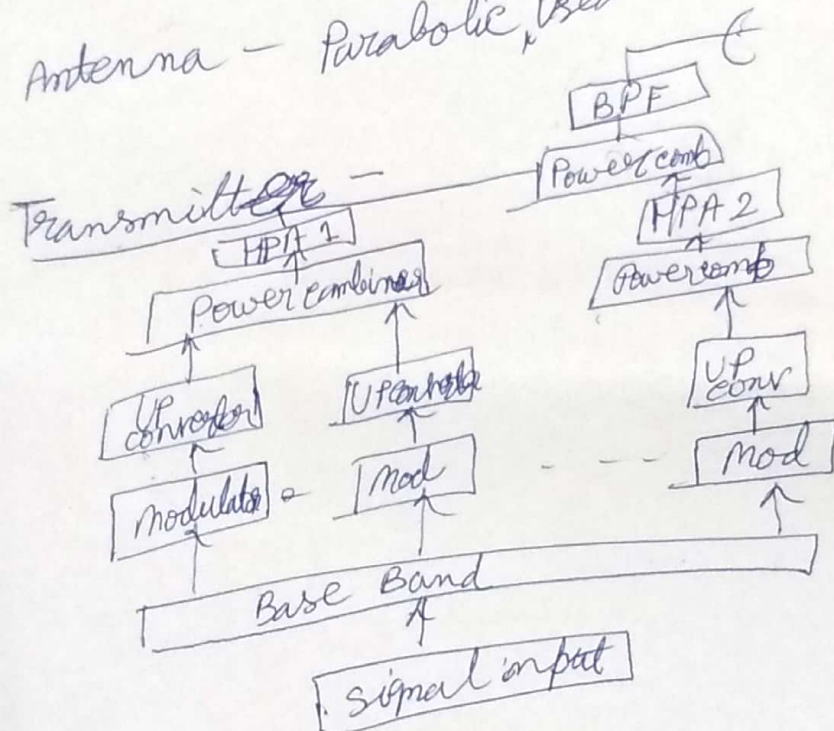 Antenna - Parabolic, Used
BPF
Power comb
Transmitter -
HPA 1
HPA 2
Power combiner
Power comb
UP
convertor
UP Convertor
UP
conv
Modulator
Mod
- - -
Mod
Base Band
Signal input